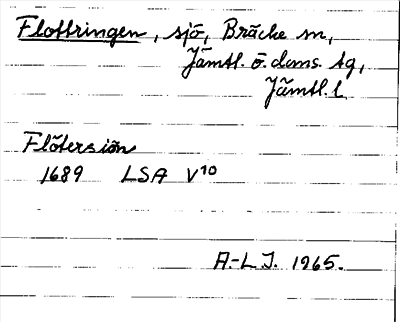 Flottringen, sjö, Bräcke sn,
Jämtl. ö. doms. tg,
Jämtl. l.
Flötersiön
1689 LSA V10
A.-L J. 1965.